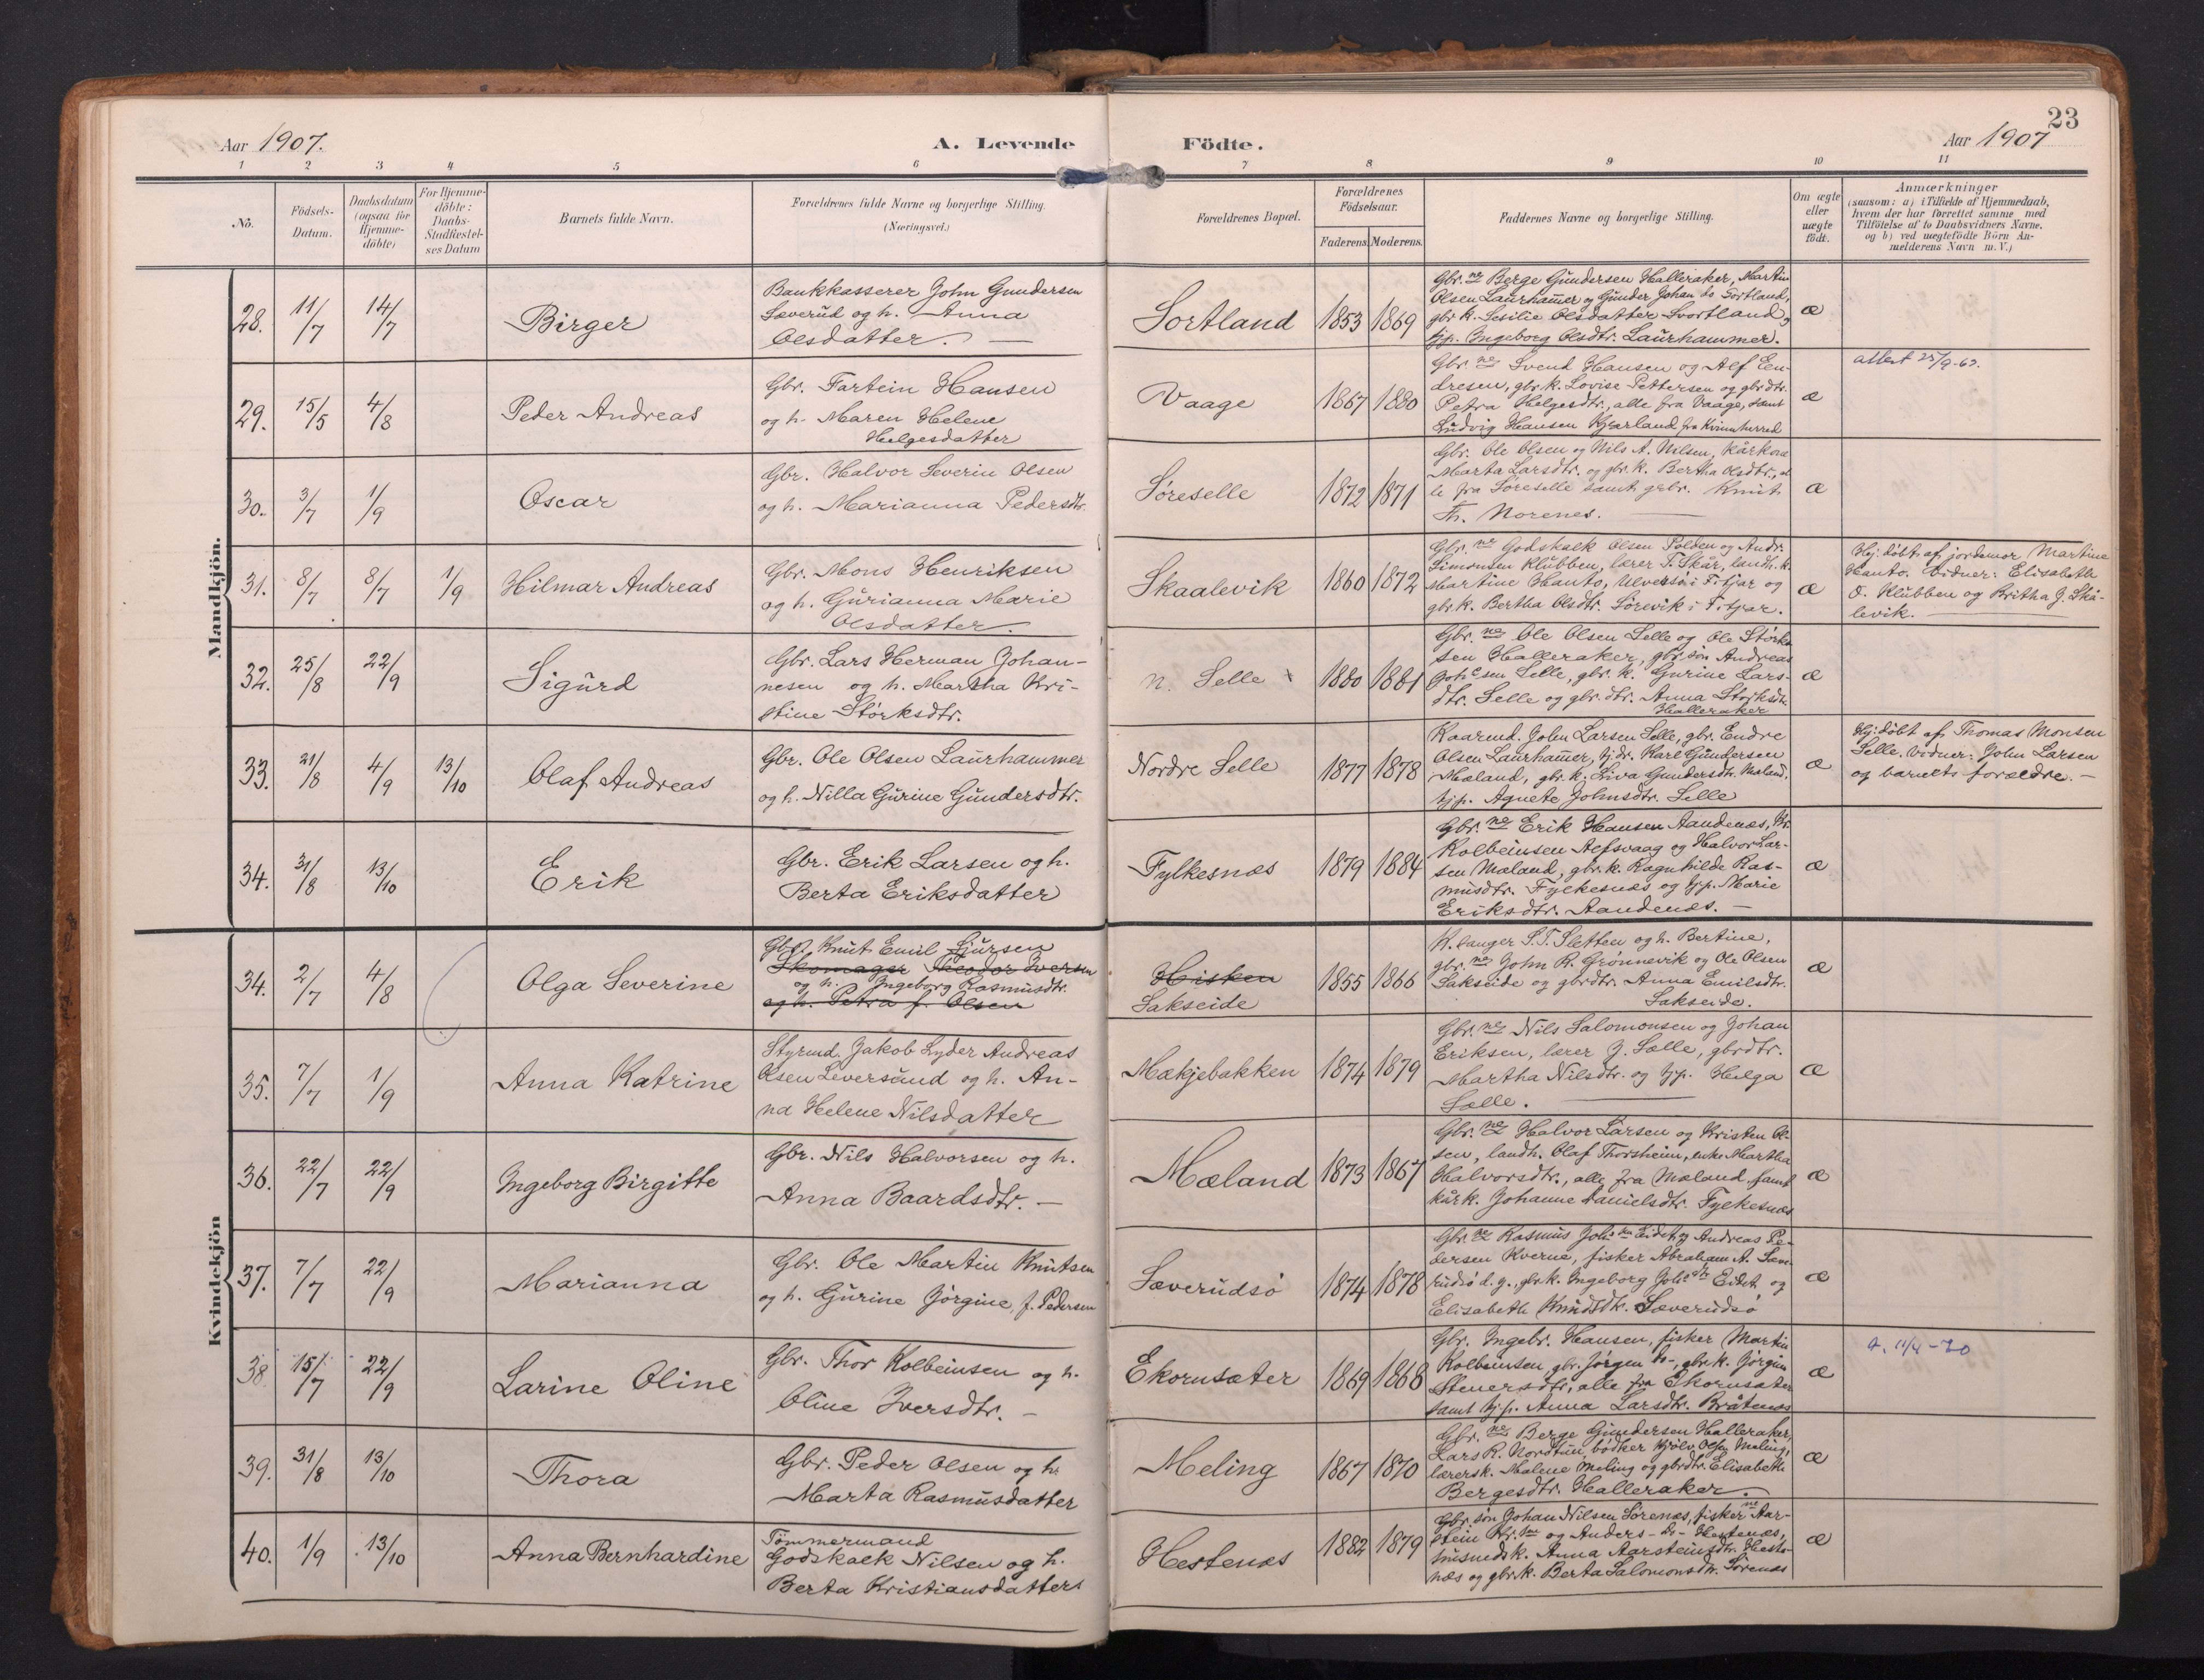 23
Aar 1907.
A. Levende
Födte.
Aar 1907
1 2 3 4 5 6 7 8 9 10 11
No.
Födsels-
Datum.
Daabsdatum
(ogsaa for
Hjemme-
döbte)
For Hjemme-
döbte:
Daabs-
Stadfæstel-
ses Datum
Barnets fulde Navn.
Forældrenes fulde Navne og borgerlige Stilling.
(Næringsvei.)
Forældrenes Bopæl.
Forældrenes
Födselsaar.
Faderens.
Moderens.
Faddernes Navne og borgerlige Stilling.
Om ægte
eller
uægte
födt.
Anmærkninger
(saasom: a) i Tilfælde af Hjemmedaab,
hvem der har forrettet samme med
Tilföielse af to Daabsvidners Navne.
og b) ved uægtefödte Börn An-
melderens Navn m. V.)
Mandkjön.
28.
11/7
14/7
Birger
Bankkasserer John Gundersen
Sæverud og h. Anna
Olsdatter. —
Sortland
1853
1869
Gbr.ne Berge Gundersen Halleraker, Martin
Olsen Laurhammer og Gunder Johan do Sortland,
gbr k. Sesilie Olsdatter Svortland,
tjp. Ingeborg Olsdtr. Laurhammer.
æ
29.
15/5
4/8
Peder Andreas
Gbr. Fartein Hansen
og h. Maren Helene
Helgesdatter
Vaage
1867
1880
Gbr.ne Svend Hansen og Alf En-
dresen, gbr. k. Lovise Pettersen og gbrdtr.
Petra Helgesdtr., alle fra Vaage, samt
Ludvig Hansen Kjærland fra Kvinnherred
æ
attest 25/9-62.
30.
3/7
1/9
Oscar
Gbr. Halvor Severin Olsen
og h. Marianna Pedersdtr.
Søreselle
1872
1871
Gbr. Ole Olsen og Nils A. Nilsen, kårkone
Marta Larsdtr. og gbr. k. Bertha Olsdtr., al-
le fra Søreselle samt gbr. Knut
Th. Norenes. —
æ
31.
8/7
8/7
1/9
Hilmar Andreas
Gbr. Mons Henriksen
og h. Gurianna Marie
Olsdatter.
Skaalevik
1860
1872
Gbr.ne Godskalk Olsen Polden og Andr.
Simonsen Klubben, lærer T. Skår, landh. k.
Martine Hanto, Ulversøi i Fitjar og
gbr k. Bertha Olsdtr. Sørevik i Fitjar.
æ
Hj. døbt af jordemor Martine
Hanto. Vidner: Elisabeth
O. Klubben og Britha J. Skå-
levik. —
32.
25/8
22/9
Sigurd
Gbr. Lars Herman Johan-
nesen og h. Martha Kri-
stine Størksdtr.
n. Selle
1880
1881
Gbr.ne Ole Olsen Selle og Ole Størk-
sen Halleraker, gbr. søn Andreas
Johsen Selle, gbr. k. Gurine Lars-
dtr. Selle og gbr. dtr. Anna Størksdtr.
Halleraker
æ
33.
21/8
4/9
13/10
Olaf Andreas
Gbr. Ole Olsen Laurhammer
og h. Nilla Gurine Gundersdtr.
Nordre Selle
1877
1878
Kaarmd. John Larsen Selle, gbr. Endre
Olsen Laurhammer, tj.dr. Karl Gundersen
Mæland, gbr. k. Siva Gundersdtr. Mæland.
tjp. Agnete Johnsdtr. Selle
æ
Hj. døbt af Thomas Monsen
Selle. Vidner: John Larsen
og barnets forældre. —
34.
31/8
13/10
Erik
Gbr. Erik Larsen og h.
Berta Eriksdatter
Fylkesnæs
1879
1884
Gbr.ne Erik Hansen Aandenæs, Kr.
Kolbeinsen Aefsvaag og Halvor Lar-
sen Mæland, gbr. k. Ragnhilde Ras-
musdtr. Fylkesnæs og tjp. Marie
Eriksdtr. Aandenæs. —
æ
Kvindekjön
34.
2/7
4/8
Olga Severine
Gbr. Knut Emil Sjursen
Skomager Theodor Iversen
og h. Ingeborg Rasmusdtr.
og h. Petra f. Olsen
Hisken
Sakseide
1855
1866
K.sanger S. T. Sletten og h. Bertine,
gbr.ne John R. Grønnevik og Ole Olsen
Sakseide og gbrdtr. Anna Emilsdtr.
Sakseide.
æ
35.
7/7
1/9
Anna Katrine
Styrmd. Jakob Lyder Andreas
Olsen Leversund og h. An-
na Helene Nilsdatter
Mækjebakken
1874
1879
Gbr.ne Nils Salomonsen og Johan
Eriksen, lærer J. Sælle, gbrdtr.
Martha Nilsdtr. og tjp. Helga
Sælle. —
æ
36.
22/7
22/9
Ingeborg Birgitte
Gbr. Nils Halvorsen og h.
Anna Baardsdtr. —
Mæland
1873
1867
Gbr.ne Halvor Larsen og Kristen Ol-
sen, landh. Olaf Thorsheim, enke Martha
Halvorsdtr., alle fra Mæland samt
kårk. Johanne Danielsdtr. Fylkesnæs
æ
37.
7/7
22/9
Marianna
Gbr. Ole Martin Knutsen
og h. Gurine Jørgine, f. Pedersen
Sæverudsø
1874
1878
Gbr.ne Rasmus Johsen Eidet og Andreas Pe-
dersen Kverne, fisker Abraham A. Sæve-
rudsø d. y., gbr k. Ingeborg Johsdtr Eidet, og
Elisabeth Knudsdtr. Sæverudsø
æ
38
15/7
22/9
Larine Oline
Gbr. Thor Kolbeinsen og h.
Oline Iversdtr. —
Ekornsæter
1869
1868
Gbr. Ingebr. Hansen, fisker Martin
Kolbeinsen gbr. Jørgen do-, gbr. k. Jørgine
Steuersdtr., alle fra Ekornsæter
samt tj.p. Anna Larsdtr. Bråtenæs
æ
A. 11/4-70
39.
31/8
13/10
Thora
Gbr. Peder Olsen og h.
Marta Rasmusdatter
Meling
1867
1870
Gbr.ne Berge Gundersen Halleraker,
Lars R. Nordtun, bødker Kjølv Olsen Meling,
lærersk. Malene Meling og gbrdtr. Elisabeth
Bergesdtr. Halleraker.
æ
40.
1/9
13/10
Anna Bernhardine
Tømmermand
Godskalk Nilsen og h.
Berta Kristiansdatter
Hestenæs
1882
1879
Gbr. søn Johan Nilsen Sørenæs, fisker ne Aar-
stein Kr.sen og Anders - do - Hestenæs,
husmdsk. Anna Aarsteinsdtr. Heste-
næs og gbr.k. Berta Salomonsdtr. Sørenæs
æ